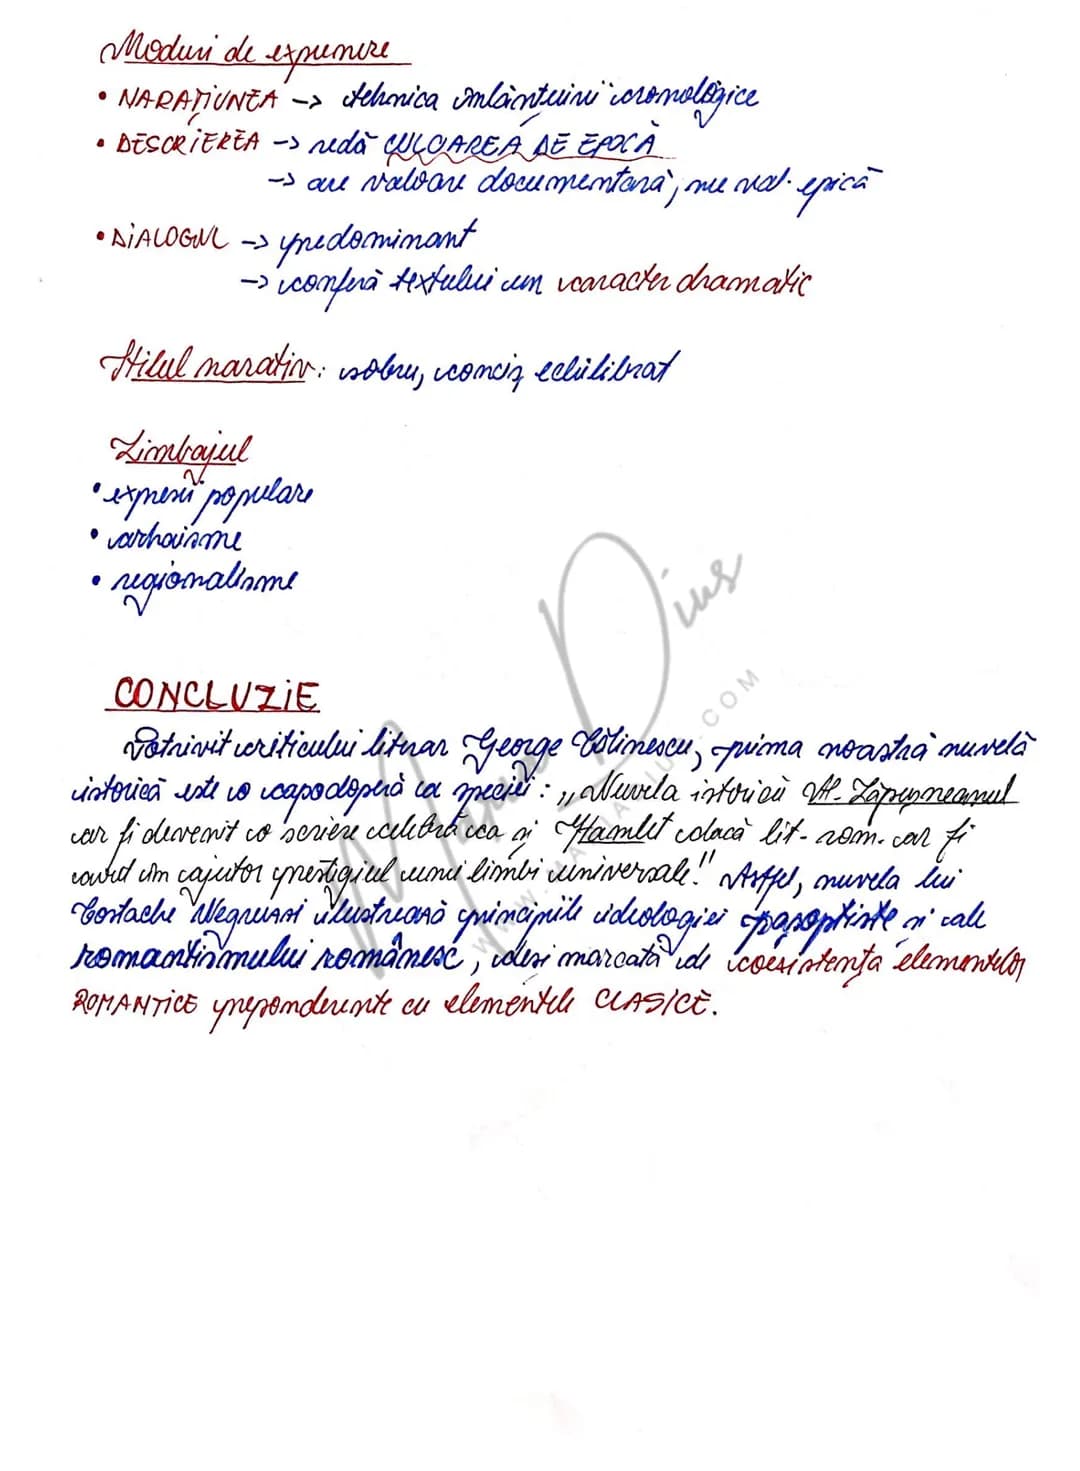 Moduri de expunere
• NARAȚIUNEA -> tehnica înlănțuirii cronologice
• DESCRIEREA -> redă CULOAREA DE EPOCĂ
-> are valoare documentară, nu val. epică
• DIALOGUL -> predominant
-> conferă textului un caracter dramatic
Stilul narativ: sobru, concis, echilibrat
Limbajul
• expresii populare
• arhaisme
• regionalisme
CONCLUZIE
Potrivit criticului literar George Călinescu, prima noastră nuvelă
istorică este o capodoperă a speciei: „Nuvela istorică Al. Lăpușneanul
ar fi devenit o scriere celebră ca și Hamlet dacă lit. rom. ar fi
avut în ajutor prestigiul unei limbi universale!" Astfel, nuvela lui
Costache Negruzzi ilustrează principiile ideologiei pașoptiste și ale
romantismului românesc, deși marcată de coexistența elementelor
ROMANTICE preponderente cu elementele CLASICE.
Maria Dius
WWW.MARIADIUS.COM